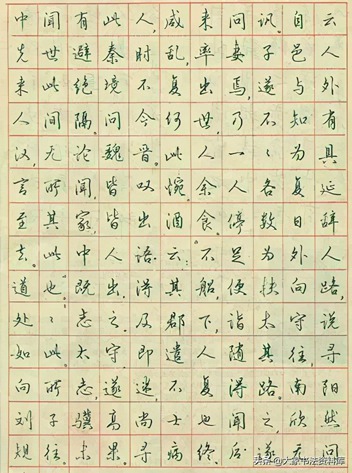 中闻有此人,咸来问讯。自云
先世避秦时乱,率妻子邑人
来此绝境,不复出焉,遂与外
人间隔。问今何世,乃不知有
汉,无论魏晋。此人一一为具
言所闻,皆叹惋。余人各复延
至其家,皆出酒食。停数日辞
去。此中人语云:“不足为外人
道也。”既出,得其船,便扶向路,
处处志之。及郡下,诣太守说
如此。太守即遣人随其往,寻
向所志,遂迷,不复得路。南阳
刘子骥,高尚士也,闻之,欣然
规往。未果,寻病终。后遂无问
头条 @大家书法资料库